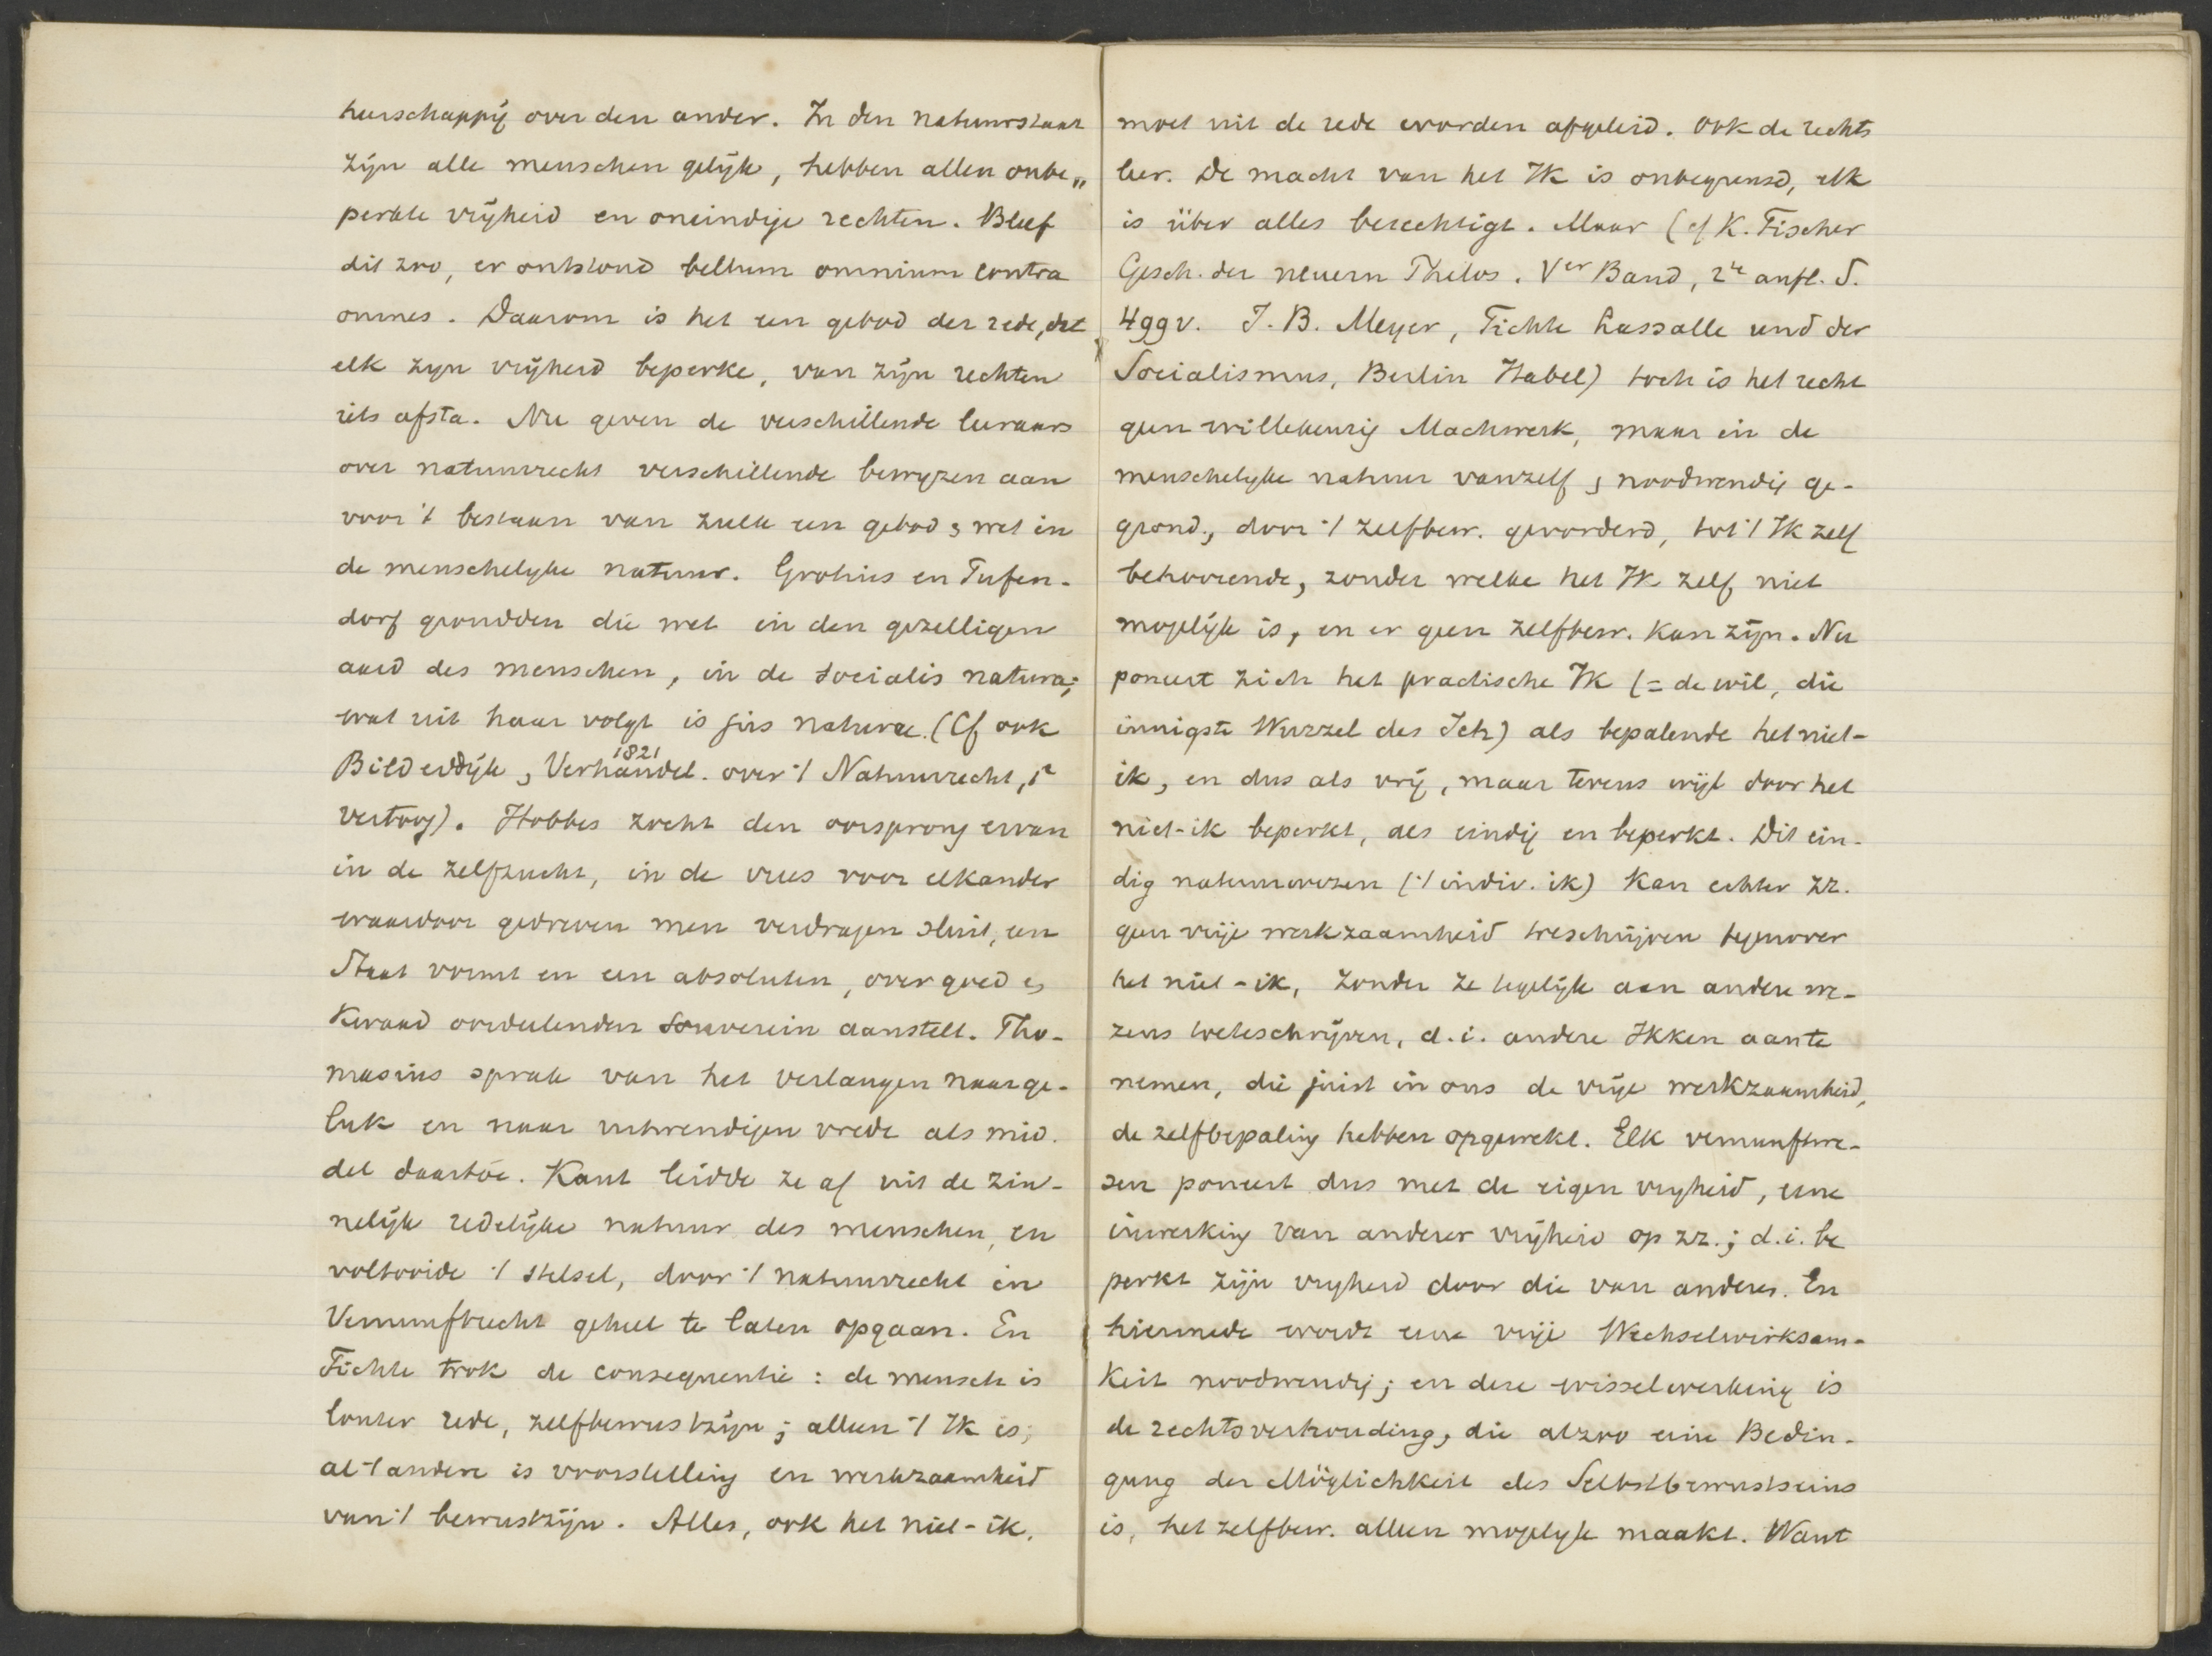 heerschappij over den ander. In den natuurstaat
zijn alle menschen gelijk, hebben allen onbe„
perkte vrijheid en oneindige rechten. Bleef
dit zoo, er ontstond bellum omnium contra
omnes. Daarom is het een gebod der rede, dat
elk zijn vrijheid beperke, van zijn rechten
iets afsta. Nu geven de verschillende leeraars
over natuurrecht verschillende bewijzen aan
voor 't bestaan van zulk een gebod en wet in
de menschelijke natuur. Grotius en Pufen-
dorf grondden die wet in den gezelligen
aard des menschen, in de socialis natura;
wat uit haar volgt is jus naturae. (Cf ook
Bilderdijk, Verhandel. 1821 over 't Natuurrecht, 1e
vertoog). Hobbes zocht den oorsprong ervan
in de zelfzucht, in de vrees voor elkander
waardoor gedreven men verdragen sluit, een
Staat vormt en een absoluten, over goed en
kwaad oordeelenden souverein aanstelt. Tho-
masius sprak van het verlangen naar ge-
luk en naar uitwendigen vrede als mid-
del daartoe. Kant leidde ze af uit de zin-
nelijk redelijke natuur des menschen, en
voltooide 't stelsel, door 't natuurrecht in
Vernunftrecht geheel te laten opgaan. En
Fichte trok de consequentie: de mensch is
louter rede, zelfbewustzijn; alleen 't Ik is;
al 't andere is voorstelling en werkzaamheid
van 't bewustzijn. Alles, ook het niet-ik,
moet uit de rede worden afgeleid. Ook de rechts
leer. De macht van het Ik is onbegrensd, elk
is über alles berechtigt. Maar (cf K. Fischer
Gesch. der neuern Philos. Ver Band, 2te aufl. S.
499 v. J. B. Meyer, Fichte Lassalle und der
Socialismus, Berlin Habel) toch is het recht
geen willekeurig Machwerk, maar in de
menschelijke natuur vanzelf en noodwendig ge-
grond, door 't zelfbew. gevorderd, tot 't Ik zelf
behoorende, zonder welke het Ik zelf niet
mogelijk is, en er geen zelfbew. kan zijn. Nu
poneert zich het practische Ik (= de wil, die
innigste Wurzel des Ich) als bepalende het niet-
ik, en dus als vrij, maar tevens wijl door het
niet-ik beperkt, als eindig en beperkt. Dit ein-
dig natuurwezen ('t indiv. ik) kan echter zz.
geen vrije werkzaamheid toeschrijven tegenover
het niet-ik, zonder ze tegelijk aan andere we-
zens toeteschrijven, d.i. andere Ikken aante
nemen, die juist in ons de vrije werkzaamheid,
de zelfbepaling hebben opgewekt. Elk vernunftwe-
zen poneert dus met de eigen vrijheid, eene
inwerking van anderer vrijheid op zz.; d.i. be
perkt zijn vrijheid door die van anderen. En
hiermede wordt eene vrije Wechselwirksam-
keit noodwendig; en deze wisselwerking is
de rechtsverhouding, die alzoo eine Bedin-
gung der Möglichkeit des Selbstbewustseins
is, het zelfbew. alleen mogelijk maakt. Want